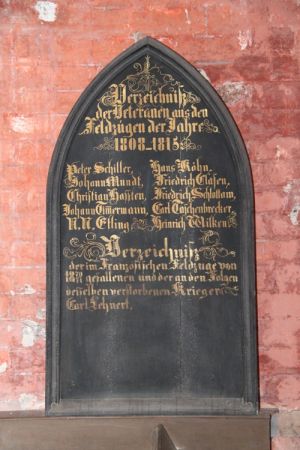 Verzeichniß
der Veteranen aus den
Feldzügen der Jahre
1808-1815
Peter Schiller, Hans Kohn,
Johann Mundt, Friedrich Clasen,
Christian Friedrich
Johann Timmermann, Carl Taschenbrecker,
N.N. Elling, Heinrich Wilken,
Verzeichniß
der im Französischen Feldzuge von
gefallenen und der an den Folgen
desselben verstorbenen Krieger
Carl Lehnert,